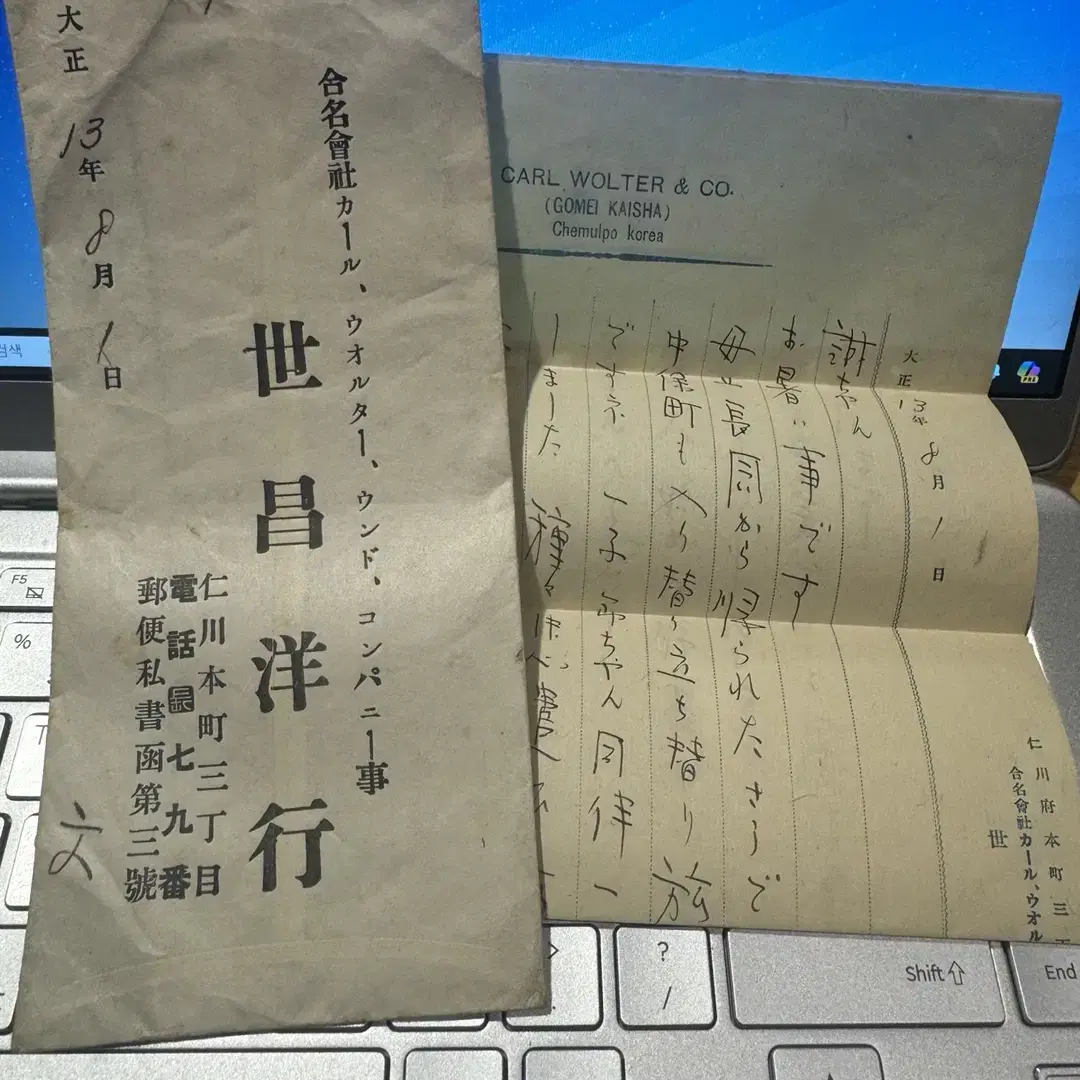 大正13年8月1日
合名會社カール、ウオルター、ウンド、コンパニー事
世昌洋行
仁川本町三丁目
電話長七九番
郵便私書函第三號
CARL WOLTER & CO.
(GOMEI KAISHA)
Chemulpo korea
仁川府本町三丁
合名會社カール、ウオル
世
大正13年8月1日
謝ちゃん
お暑い事です
母上長岡から帰られたさうで
中保町も入り替り立ち替り
ですネ 一子 ちゃん同伴
しました 種々
검색
PRE
F5
%
?
/
Shift
End